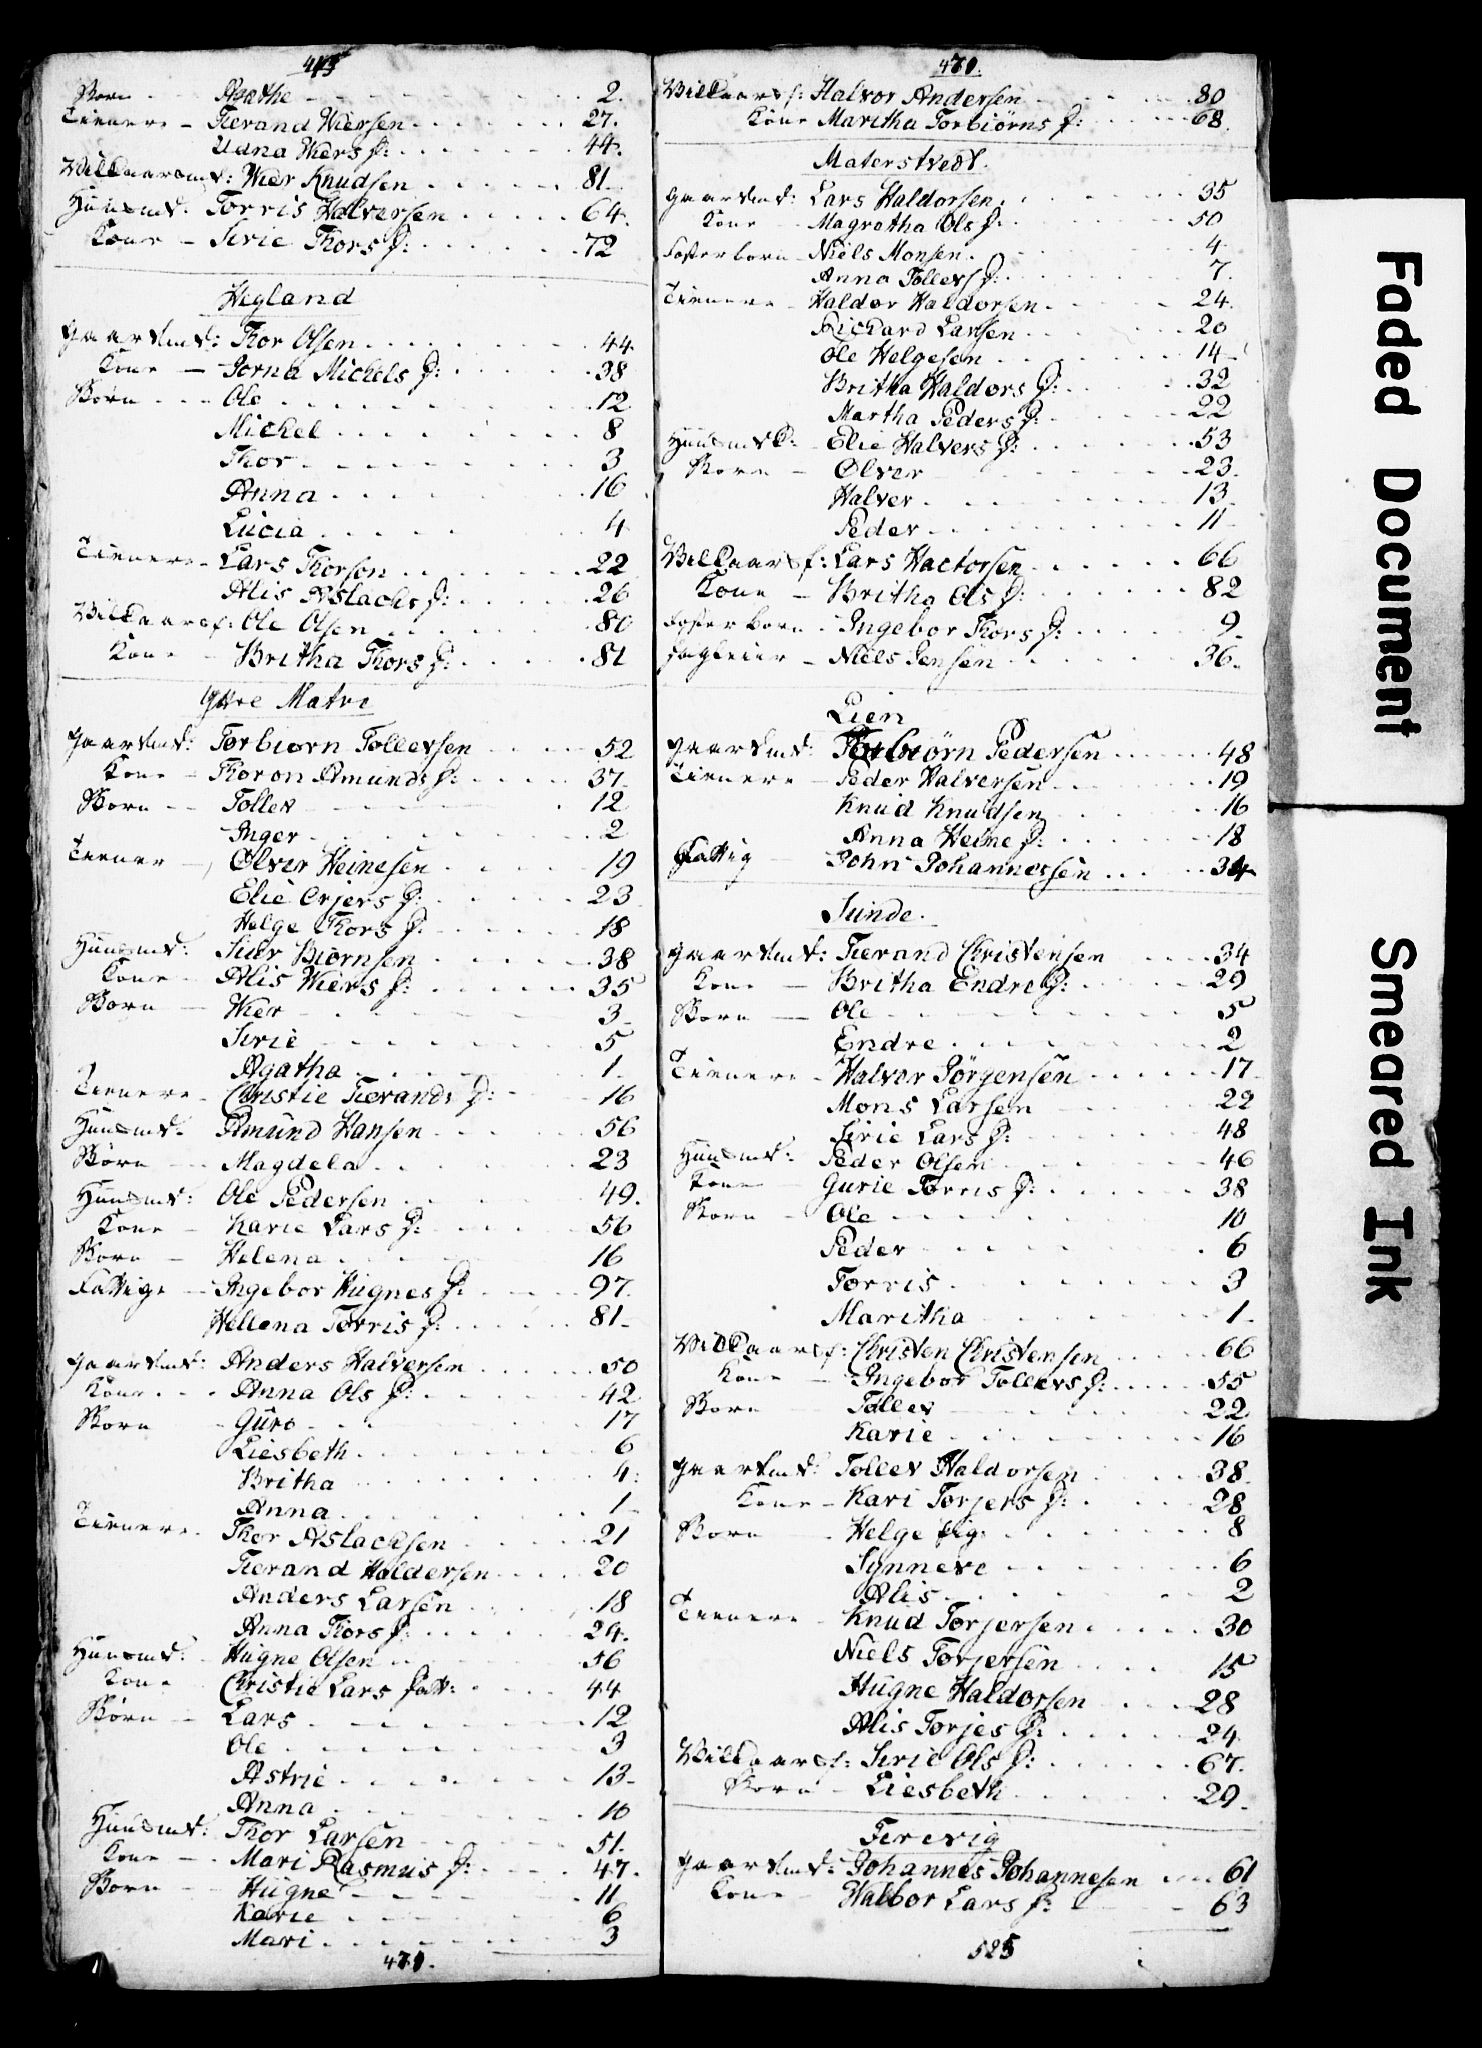 413
Børn - Agathe - 2.
Tienere - Tierand Wiersen 27.
Udna Wiers d: 44.
Vilkaarsmd: Wier Knudsen 81.
Huusmd: Torris Halversen 64.
Kone - Sirie Thors d: 72
Hegland
Gaardmd: Thor Olsen 44.
Kone - Jorna Michels d: 38
Børn - Ole 12.
Michel 8
Thor 3
Anna 16
Lucia 4
Tienere - Lars Thorson 22
Alis Aslachs d: 26
Vilkaarsf: Ole Olsen 80
Kone - Britha Thors d: 81
Yttre Matre
Gaardmd: Torbiorn Tollevsen 52
Kone - Thoron Amunds d: 37
Børn - Tollev 12
Inger 2
Tiener - Ølver Heinesen 19
Elie Erjers d: 23
Helge Thors d: 18
Huusmd: Siur Biørnsen 38
Kone - Alis Wiers d: 35
Børn - Wier 3
Sirie 5
Agatha 1
Tienere - Christie Tierands d: 16
Huusmd: Amund Hansen 56
Børn - Magdela 23
Huusmd: Ole Pedersen 49.
Kone - Karie Lars d: 56
Børn - Helena 16
Fattige - Ingebor Hugnes d: 97
Hellena Torris d: 81
Gaardmd: Anders Halversen 50
Kone - Anna Ols d: 42
Børn - Guro 17
Liesbeth 6
Britha 4
Anna 1
Tienere - Thor Aslachsen 21
Tierand Haldorsen 20
Anders Larsen 18
Anna Thors d: 24.
Huusmd: Hugne Olsen 56
Kone Christie Lars datt: 44
Børn - Lars 12
Ole 3
Astrie 13
Anna 10
Huusmd: Thor Larsen 51.
Kone - Mari Rasmus d: 47.
Børn - Hugne 11
Karie 6
Mari 3
470.
470.
Vilkaarsf: Halvor Andersen 80
Kone Maritha Torbiørns d: 68
Materstvedt.
Gaardmd: Lars Haldorsen 35
Kone - Magretha Ols d: 50
Fosterbørn - Niels Monsen 4
Anna Tollevs d: 7.
Tienere - Haldor Haldorsen 24.
Richard Larsen 20
Ole Helgesen 14
Britha Haldors d: 32
Martha Peders d: 22
Huusmd: Elie Halvers d: 53
Børn - Ølver 23
Halver 13
Peder 11
Vilkaarsf: Lars Hactorsen 66
Kone - Britha Ols d: 82
Fosterbarn - Ingebor Thors d: 9
Niels Jensen 36.
Lien
Gaardmd: Torbiørn Pedersen 48
Tienere - Peder Halversen 19
Knud Knudsen 16
Anna Heine d: 18
Fattig John Johannessen 34
Sunde.
Gaardmd: Tierand Christensen 34
Kone - Britha Endre d: 29
Børn - Ole 5
Endre 2
Tienere - Halvor Jørgensen 17
Mons Larsen 22
Sirie Lars d: 48
Huusmd: Peder Olsen 46
Kone - Gurie Torris d: 38
Børn - Ole 10
Peder 6
Torris 3
Maritha 1.
Vilkaarsf: Christen Christensen 66
Kone - Ingebor Tollevs d: 55
Børn Tollev 22
Karie 16
Gaardmd: Tollev Haldorsen 38
Kone - Kari Torjers d: 28
Børn - Helge pig: 8
Synneve 6
Alis 2
Tienere - Knud Torjersen 30
Niels Torjersen 15
Hugne Haldorsen 28
Alis Torjes d: 24
Vilkaarsf: Sirie Ols d: 67.
Børn - Liesbeth 29.
Terevig
Gaardmd: Johannes Johannesen 61
Kone - Walbor Lars d: 63
525
Faded Document
Smeared Ink